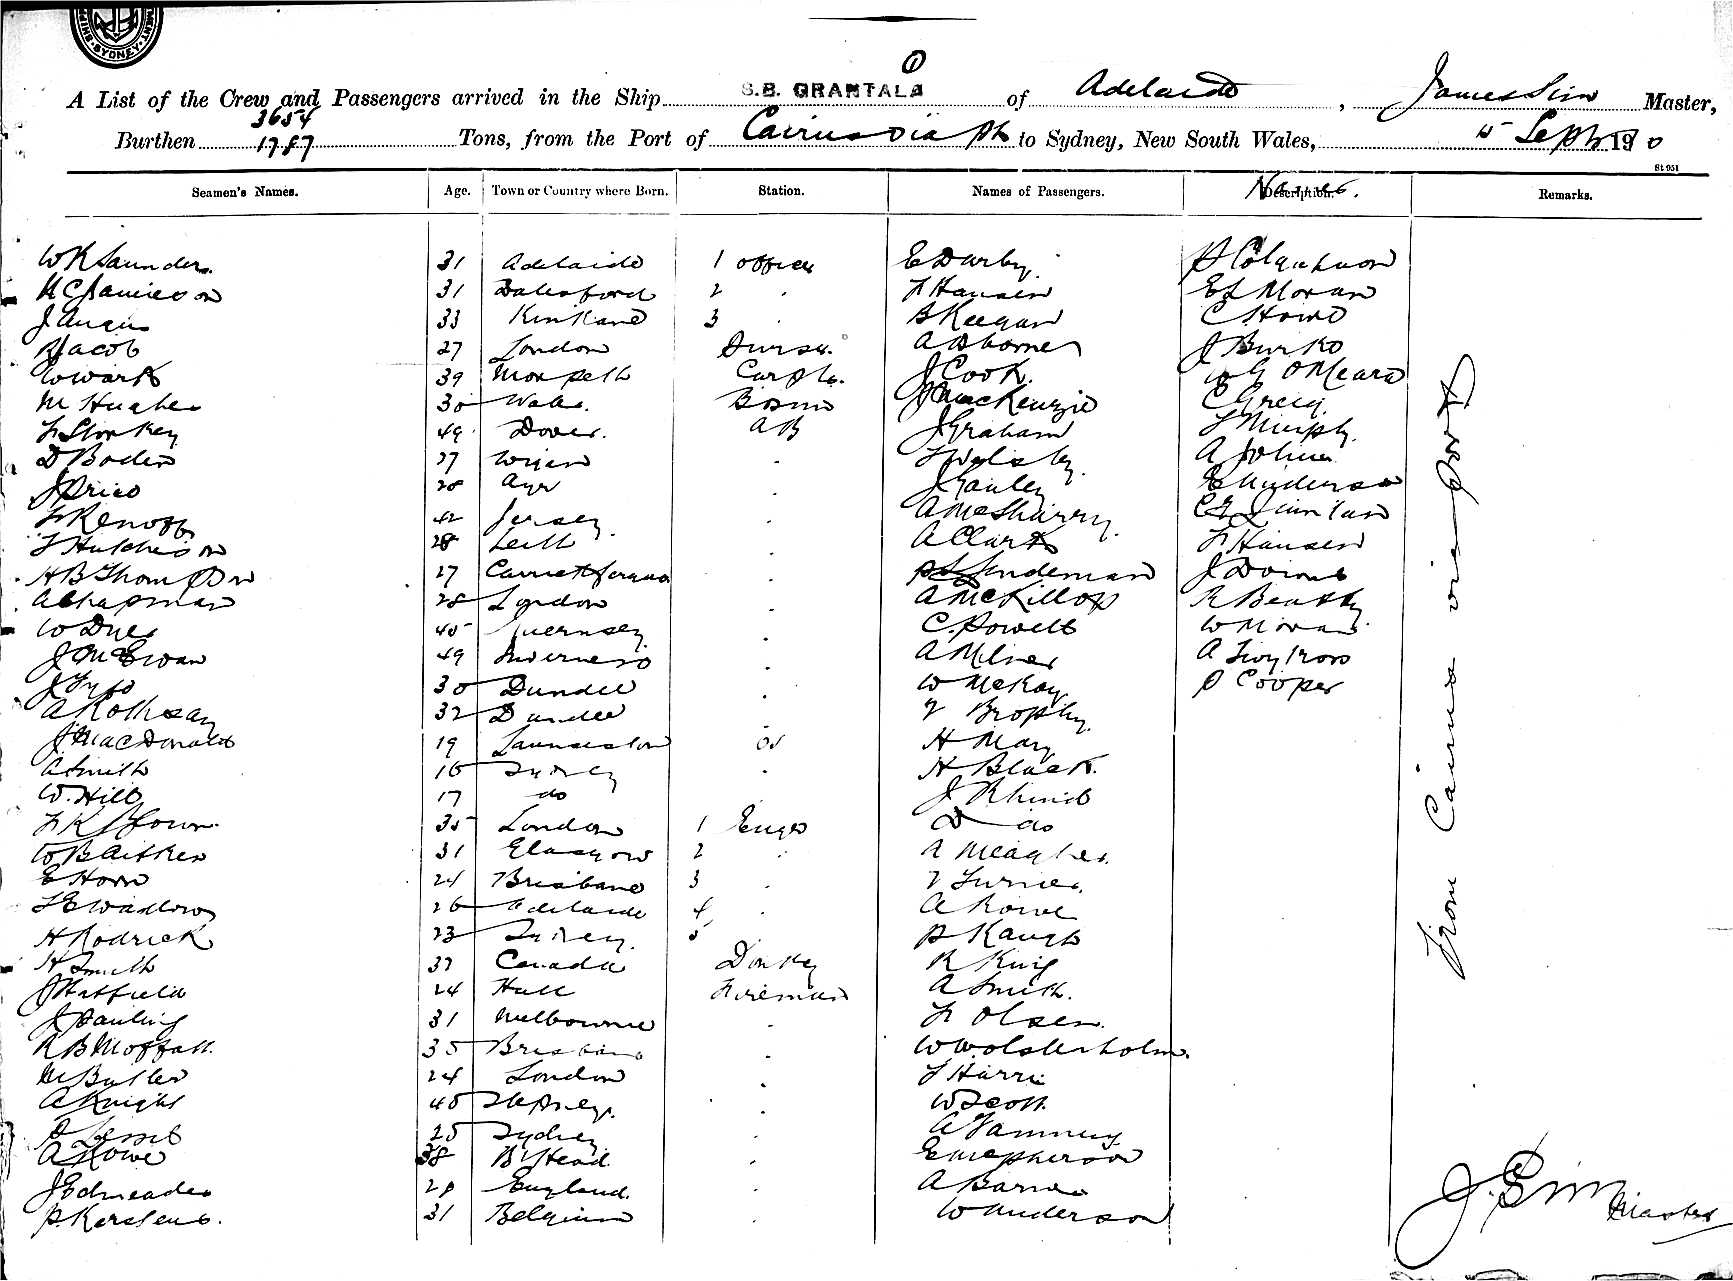 SYDNEY
1
A List of the Crew and Passengers arrived in the Ship S.S. GRANTALA of Adelaide, James Sim Master,
3654
Burthen 1787 Tons, from the Port of Cairns via pts to Sydney, New South Wales, 15 Septr 1910
St 951
Seamen's Names. Age. Town or Country where Born. Station. Names of Passengers. Description. Names. Remarks.
W R Saunders 31 Adelaide 1 officer E Darby P Colquhoun
H C Jamieson 31 Dalesford 2 . F Hansen E L Moran
J Angus 33 Kinkand 3 . B Keegan C Howe
R Jacob 27 London Purser A Osborne J Burke
W Wark 39 Morpeth Carptr. J Cook W G O'Meara
M Hughes 30 Wales Bosun J MacKenzie C Greig
F Storkey 49 Dover AB J Graham T Murphy
D Boden 27 Wigan . F Welsby A Johns
J Price 28 Ayr . J Ganley E Anderson
F Renoff 42 Jersey . A McSharry C E Quinlan
T Hutchison 28 Leith . A Clark F Hansen
H B Thompson 27 Carrickfergus . P L Lindeman J Downs
A Chapman 28 London . A McKillop R Beatty
W Dyer 45 Guernsey . C. Powell W Moran
J McEwan 49 Inverness . A Milner A Twytron
J Fyfe 30 Dundee . W McKay P Cooper
A Rothsay 32 Dundee . T Brophy
J MacDonald 19 Launceston OS H May
A Smith 16 Sydney . H Black
W. Hill 17 do J Rhind
F K Brown 35 London 1 Engr D do
W B Aitken 31 Glasgow 2 . A Meagher
E Horn 24 Brisbane 3 . T Turner
F E Wadlow 26 Adelaide 4 . A Rowe
H Rodrick 23 Sydney 5 P Kaugh
H Smith 37 Canada Donkey R King
J Hatfield 24 Hull Fireman A Smith
J Pauling 31 Melbourne . F Olsen
R B Moffatt 35 Brisbane . W Wolstenholm
M Butler 24 London . F Harris
A Knight 40 Stepney . W Scott
25 Sydney . A Tammey
A Rowe 38 B'Head . E McPherson
J Edmeades 28 England . A Barnes
P Kerstens 31 Belgium . W Anderson
From Cairns via ports
J. Sim Master